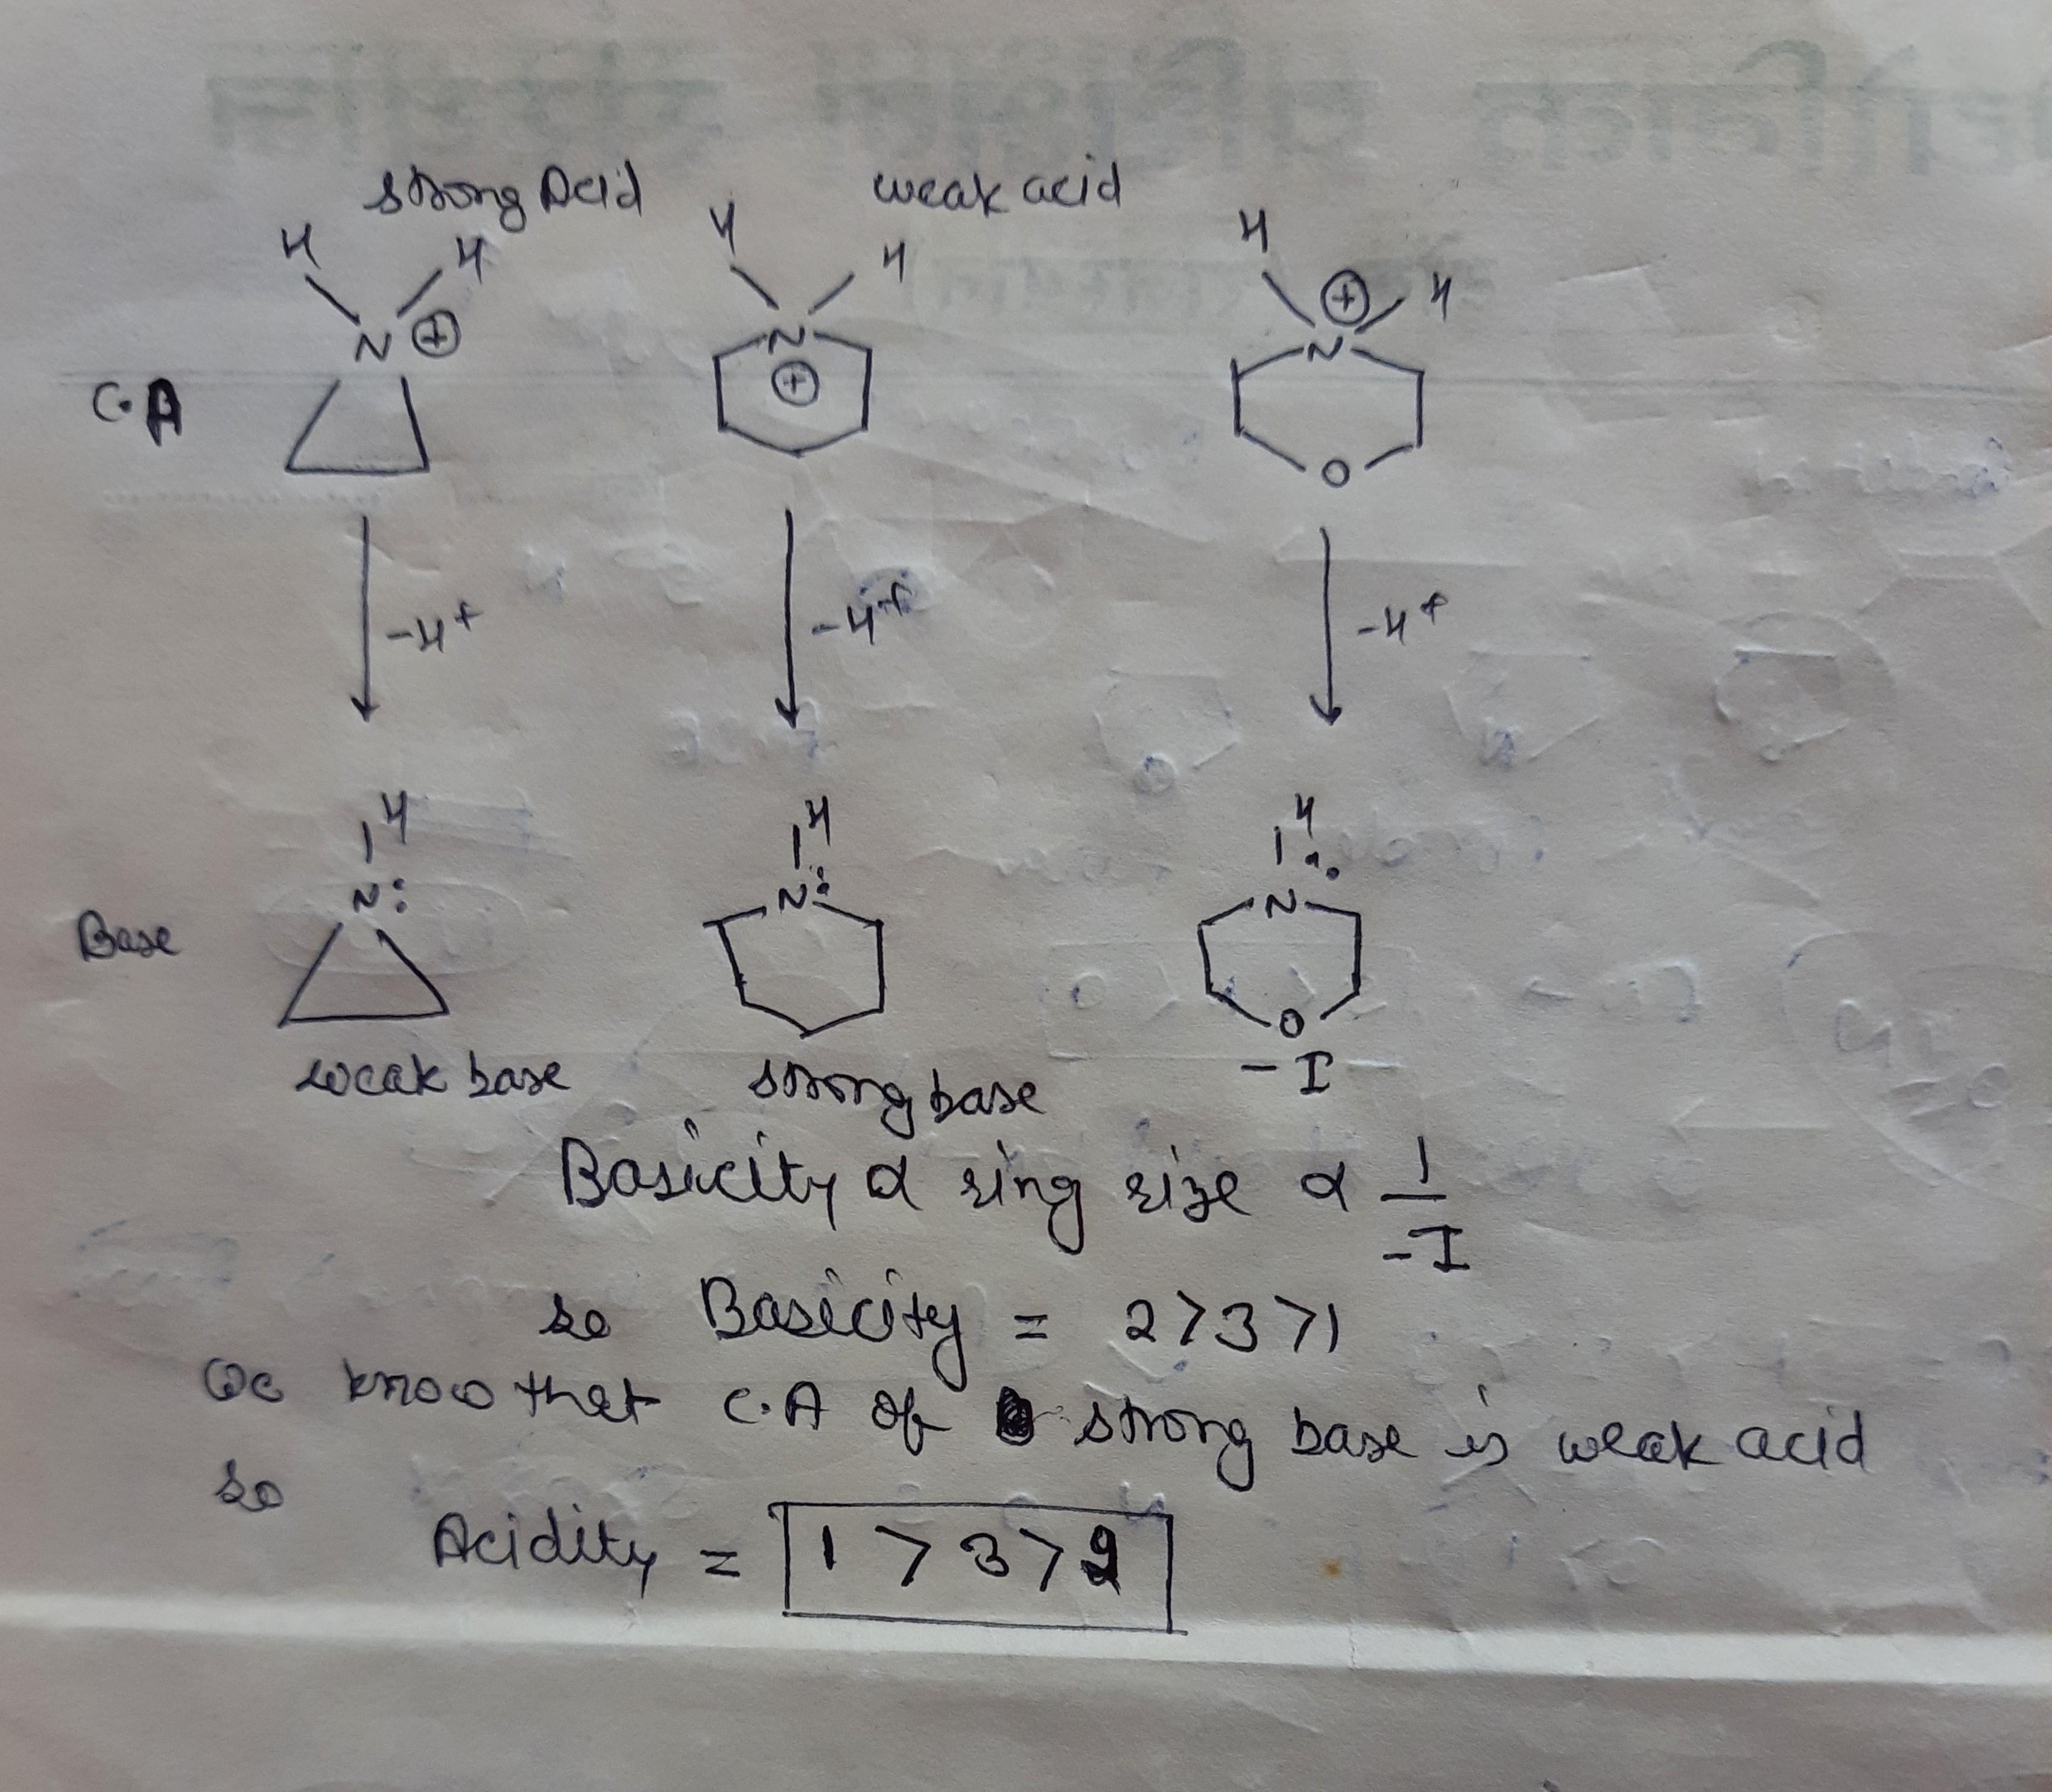 strong Acid weak acid
H H H H H H
N ⊕ N ⊕ N ⊕
C.A
O
-H+ -H+ -H+
H H H
N: N: N:
Base
O
weak base strong base -I
Basicity α ring size α 1/-I
so Basicity = 2>3>1
We know that C.A of strong base is weak acid
so
Acidity = 1 > 3 > 2